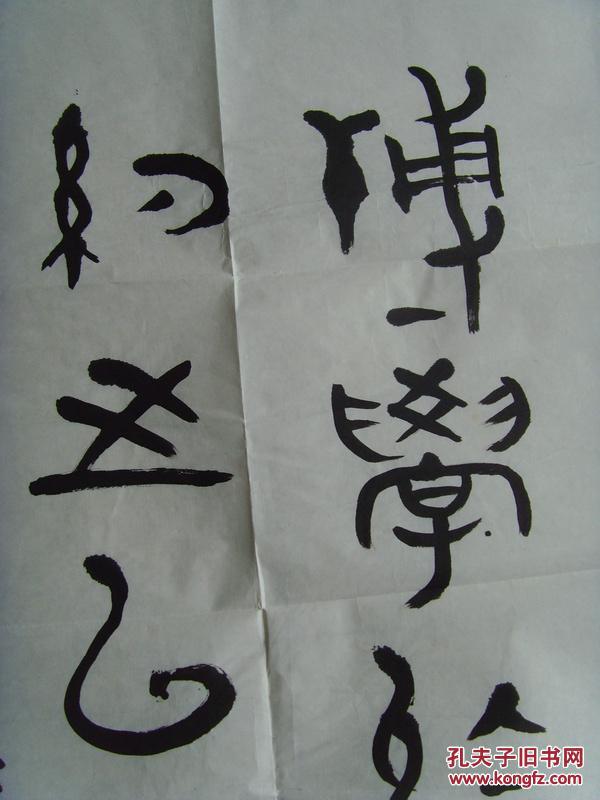 博學於
約之以
孔夫子旧书网
www.kongfz.com